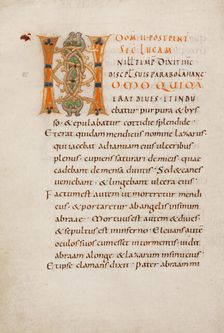 DOM II POST PENT
SEC LUCAM
IN ILL TEMP DIXIT IHC
DISCPL SUIS PARABOLA HANC
OMO QUIDA
ERAT DIVES ET INDU
ebatur purpura & bys
so & epulabatur cotidie splendide
Et erat quidam mendicus nomine lazarus
qui iacebat ad ianuam eius ulceribus
plenus cupiens saturari de micis quae
cadebant de mensa diuitis Sed & canes
ueniebant & lingebant ulcera eius
Factum est autem ut moreretur mendicus
& portaretur ab angelis in sinum
abrahae Mortuus est autem & diues
& sepultus est in inferno Eleuans autem
oculos suos cum esset in tormentis uidit
abraam alonge & lazarum in sinu eius
Et ipse clamans dixit pater abraam